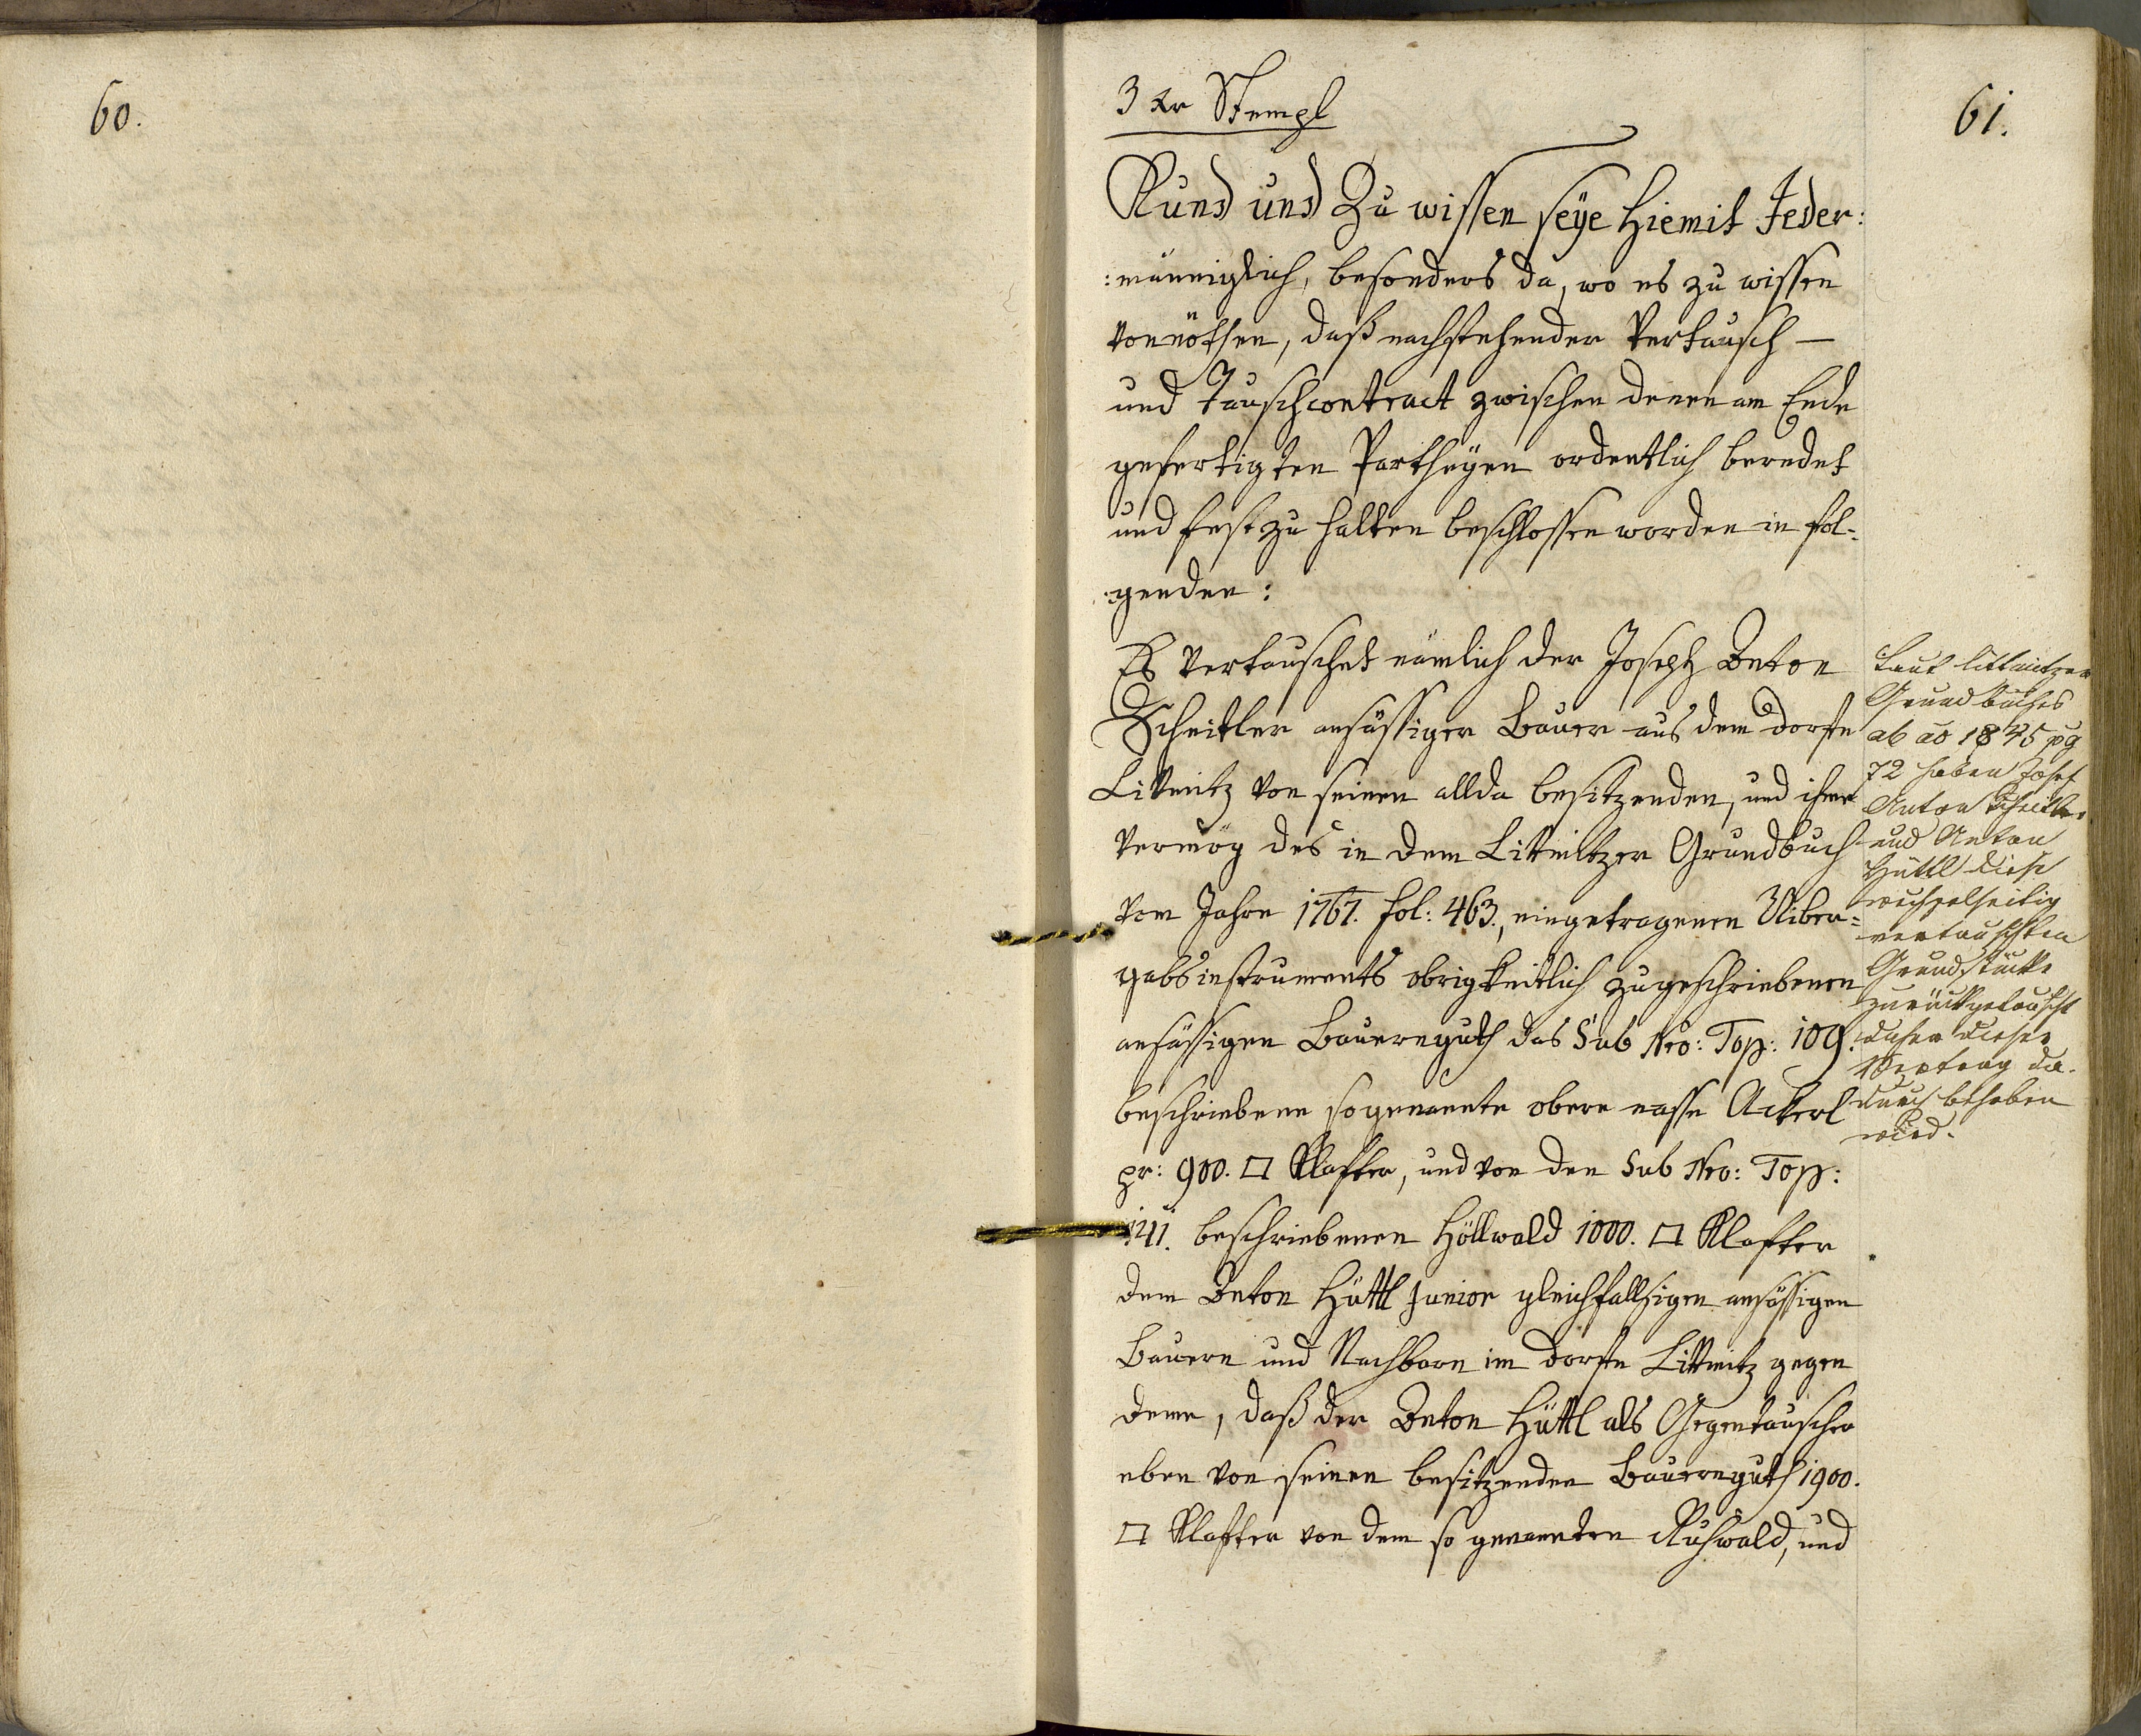 60.
61.
3 Kr Stempl
Kund und Zu wissen seÿe Hiemit Jeder:
:männiglich, besonders da, wo es zu wissen
vonnöthen, daß nachstehender Vertausch —
und Tauschcontract zwischen denen am Ende
gefertigten Partheÿen ordentlich beredet
und fest zu halten beschlossen worden in fol-
:genden:
Es Vertauschet nämlich der Joseph Anton
Scheitler ansässiger Bauer aus dem Dorfe
Littnitz von seinen allda besitzenden, und ihme
Vermög des in dem Littnitzer Grundbuch
vom Jahre 1767. fol: 463., eingetragenen Uiber=
gabsinstruments obrigkeitlich zugeschriebenen
ansässigen Bauernguth das Sub Nro: Top: 109.
beschriebene sogenannte obere nasse Ackerl
pr: 900. □ Klafter, und von den Sub Nro: Top:
141. beschriebenen Höllwald 1000. □ Klafter
dem Anton Hüttl Junior gleichfallsigen ansässigen
Bauern und Nachbarn im Dorfe Littnitz gegen
deme, daß der Anton Hüttl als Gegentauscher
eben von seinen besitzenden Bauernguth 1900.
□ Klafter von dem so genannten Kuhwald, und
Laut Littnitzer
Grundbuches
ab ao 1845 pg
72 haben Josef
Anton Scheitler
und Anton
Hüttl diese
wechselseitig
vertauschten
Grundstücke
zurückgetauscht
daher dieser
Vertrag da-
durch behoben
wird.